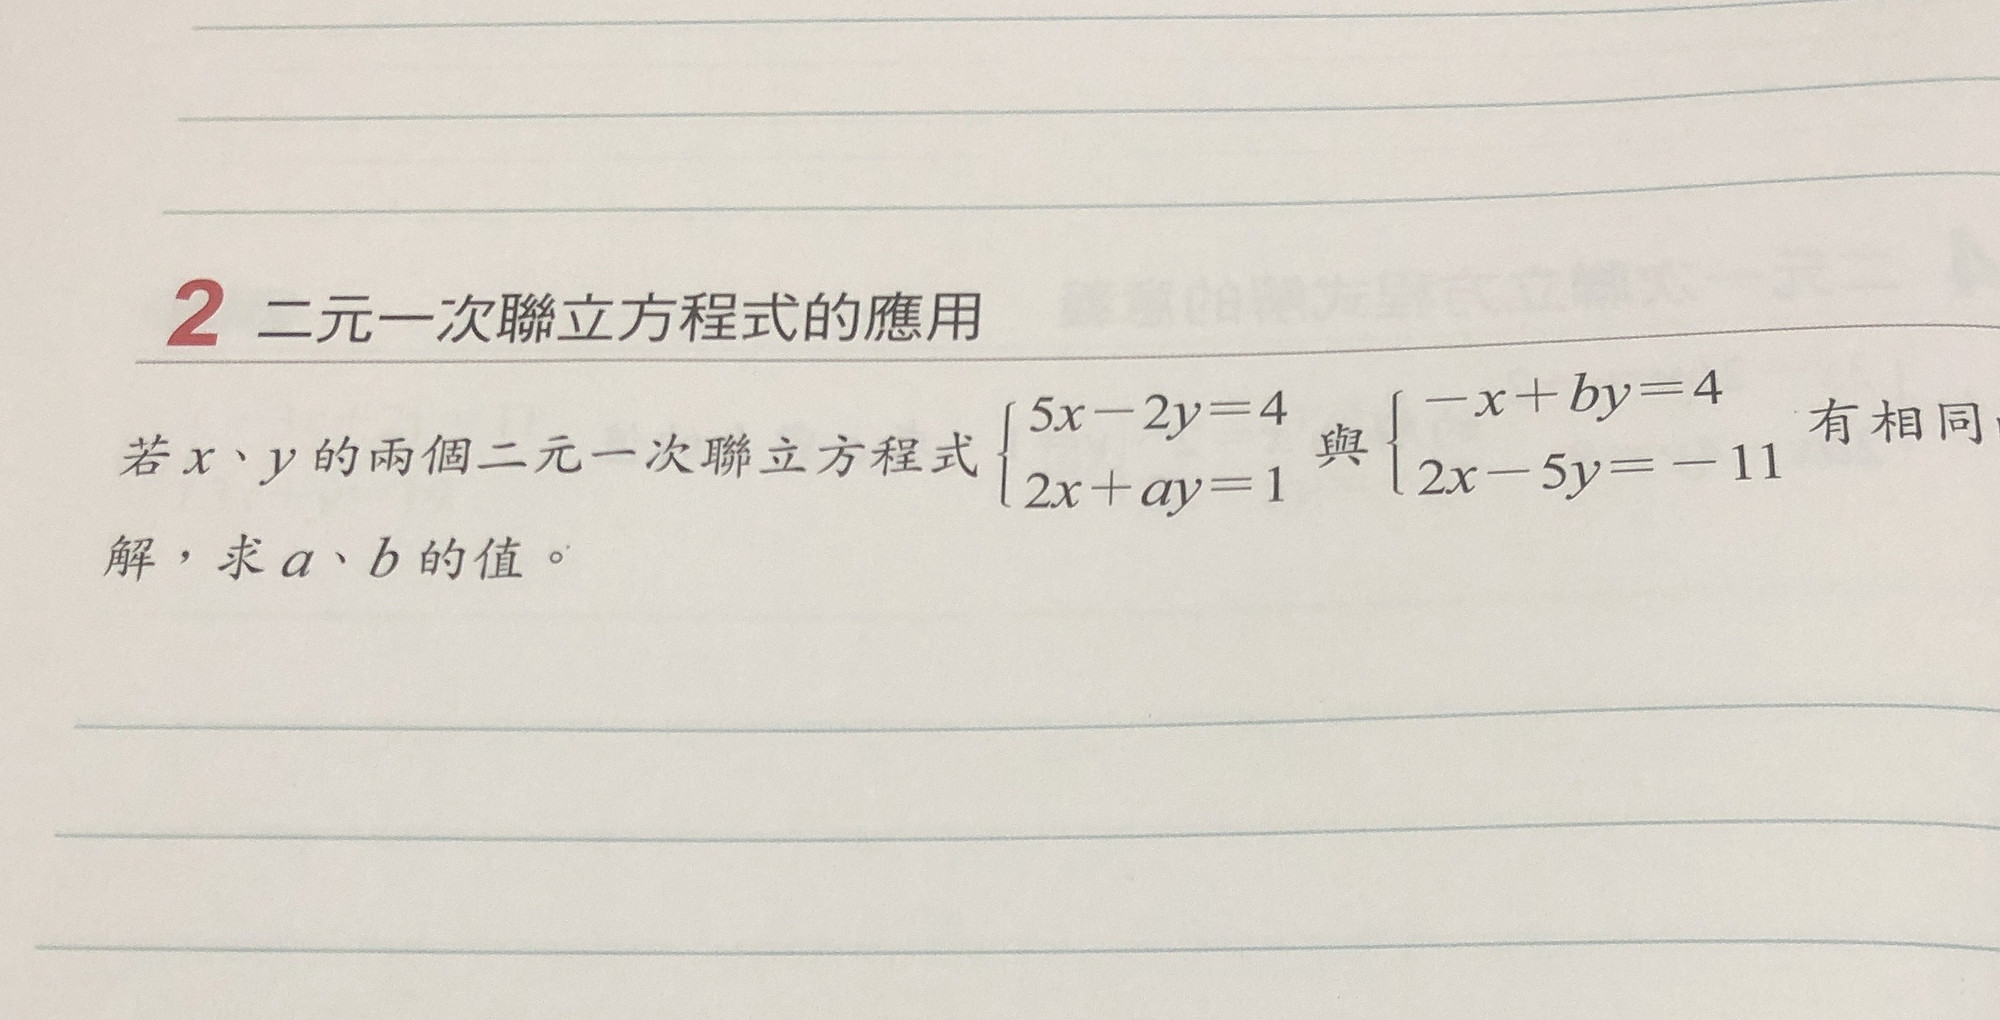 2 二元一次聯立方程式的應用
若 x、y 的兩個二元一次聯立方程式 { 5x－2y＝4 2x＋ay＝1 與 { －x＋by＝4 2x－5y＝－11 有相同
解，求 a、b 的值。